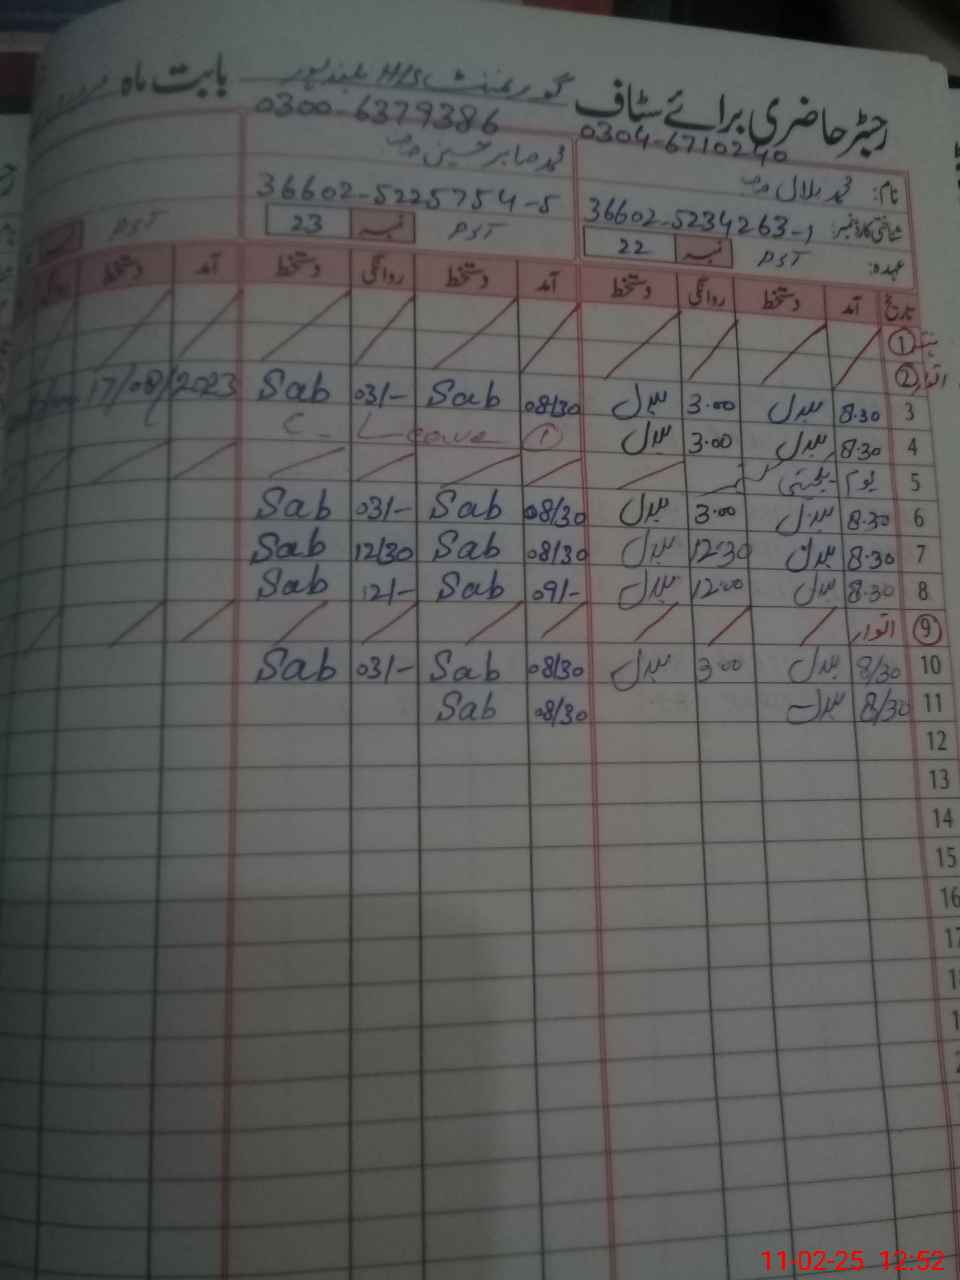 رجسٹر حاضری برائے سٹاف گورنمنٹ H/S بلندپور بابت ماہ
0304-6710240 0300-6379386
نام: محمد بلال محمد صابر حسین
شناختی کارڈ نمبر: 36602-5234263-1 36602-5225754-5
عہدہ: PST نمبر 22 PST نمبر 23 PST
تاریخ آمد دستخط روانگی دستخط آمد دستخط روانگی دستخط آمد دستخط
1
2 اتوار
3 8.30 بلال 3.00 بلال 08/30 Sab 03/- Sab 17/08/2023
4 8.30 بلال 3.00 بلال 1 C-Leave
5 یوم یکجہتی کشمیر
6 8.30 بلال 3.00 بلال 08/30 Sab 03/- Sab
7 8.30 بلال 12.30 بلال 08/30 Sab 12/30 Sab
8 8.30 بلال 12.00 بلال 09/- Sab 12/- Sab
9 اتوار
10 8/30 بلال 3.00 بلال 08/30 Sab 03/- Sab
11 8/30 بلال 08/30 Sab
12
13
14
15
16
17
11-02-25 12:52